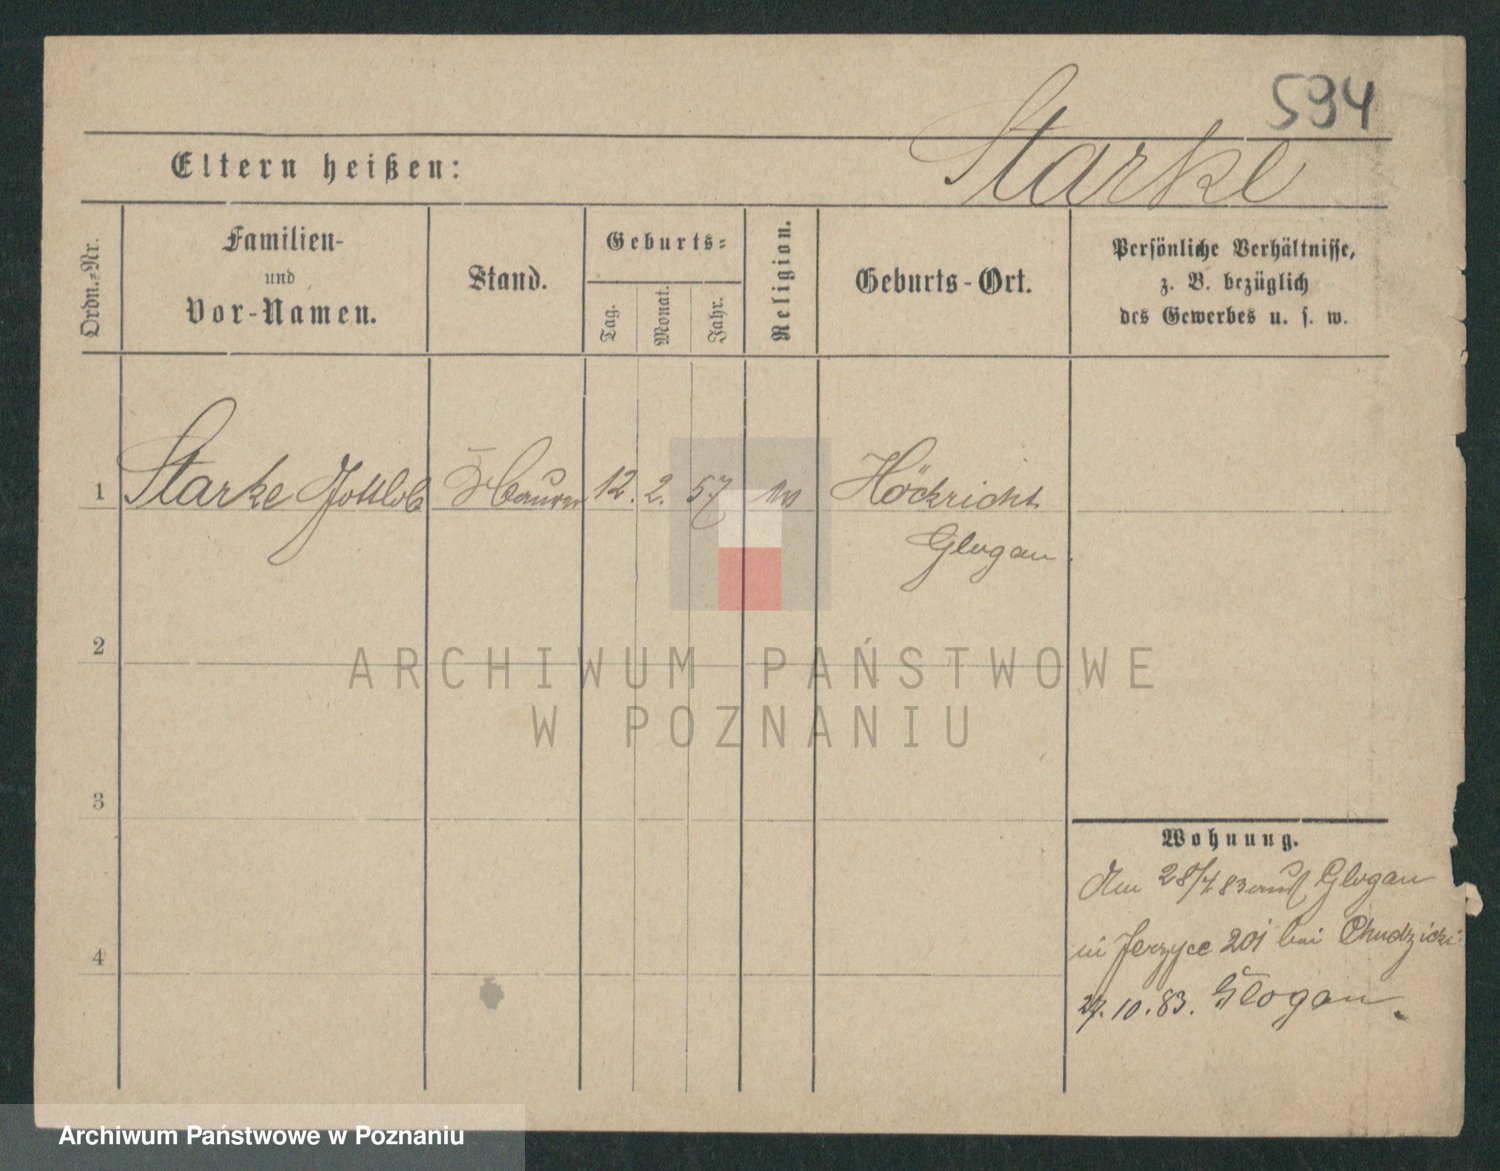 594
Starke
Eltern heißen:
Ordn.-Nr.
Familien-
und
Vor-Namen.
Stand.
Geburts-
Tag.
Monat.
Jahr.
Religion.
Geburts-Ort.
Persönliche Verhältnisse,
z. B. bezüglich
des Gewerbes u. s. w.
1 Starke Gottlob 12. 2. 57 Höckricht
Glogau.
2
ARCHIWUM PAŃSTWOWE
W POZNANIU
3
Wohnung.
28/7 83 aus Glogau
in Jerzyce 201 bei Chudzicki
4
27.10.83. Glogau.
Archiwum Państwowe w Poznaniu